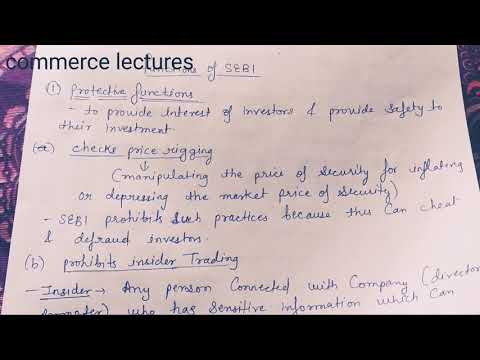 commerce lectures
Functions of SEBI
(1) Protective functions
- to provide interest of investors & provide safety to
their investment.
(a) checks price rigging
(manipulating the price of security for inflating
or depressing the market price of security)
- SEBI prohibits such practices because this can cheat
& defraud investors.
(b) prohibits insider Trading
- Insider → Any person connected with Company (director
promoter) who has sensitive information which can